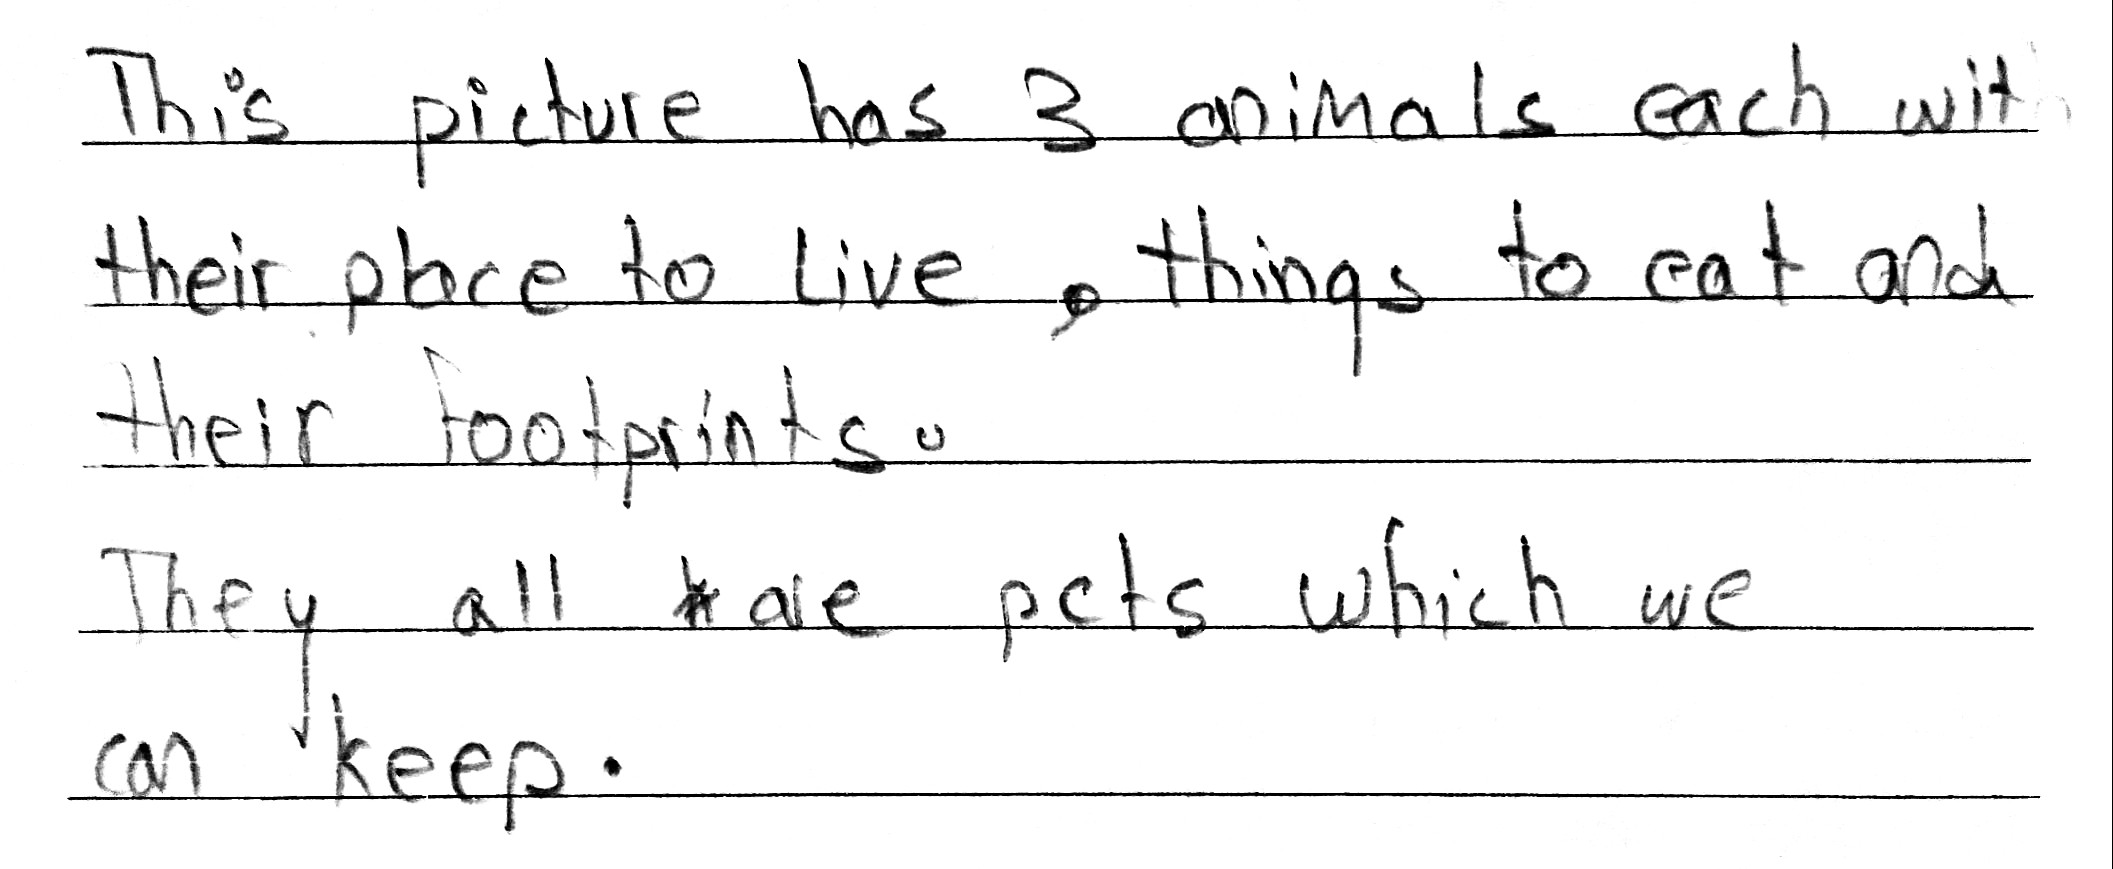 This picture has 3 animals each with
their place to live, things to eat and
their footprints.
They all are pets which we
can keep.